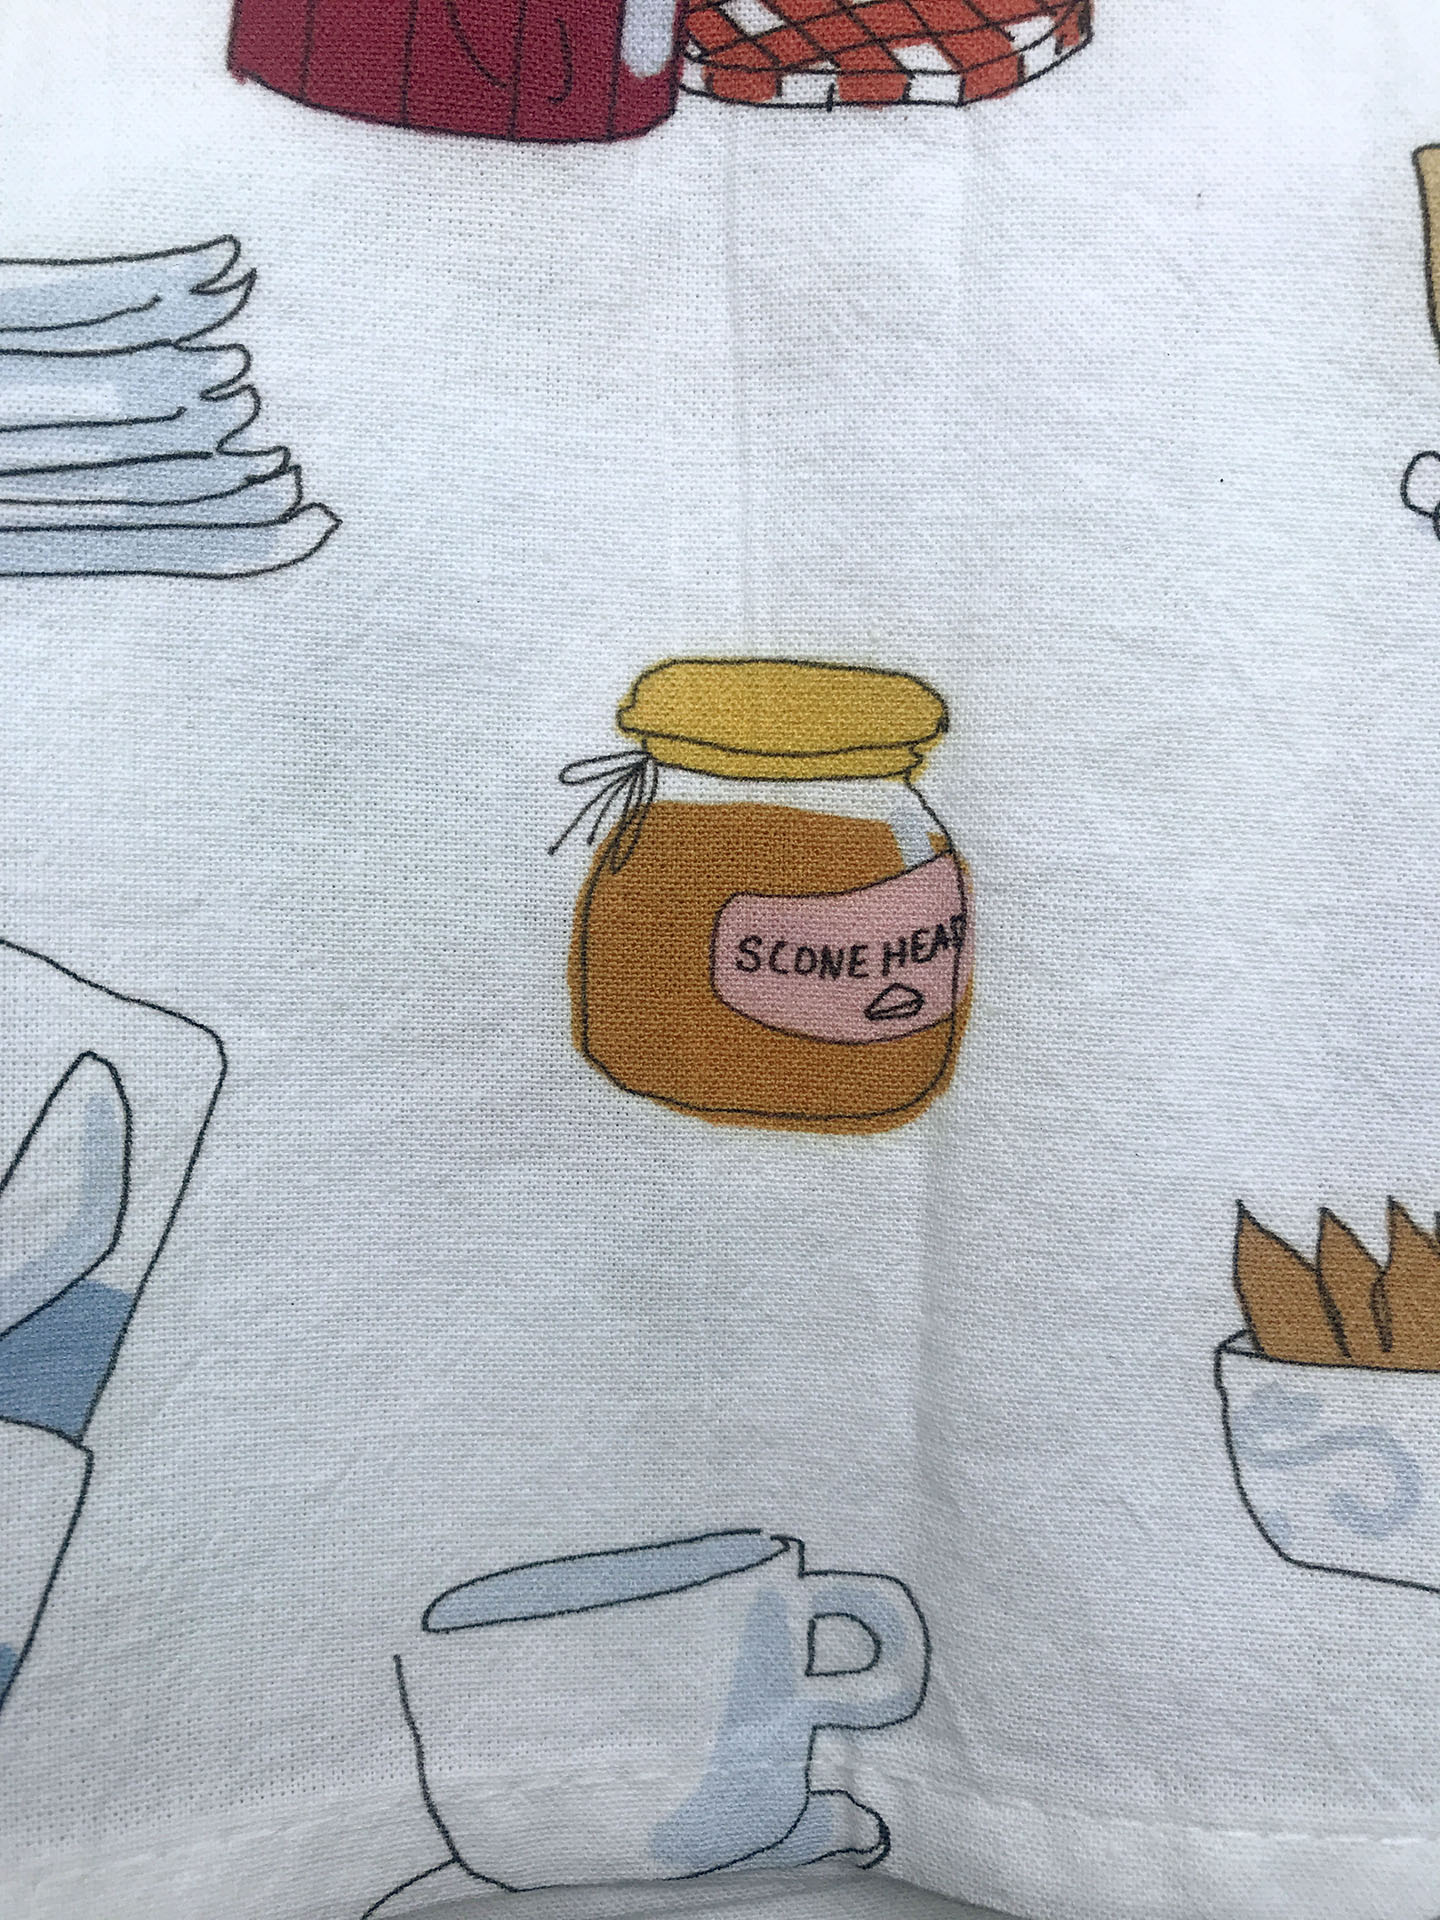 SCONE HEAD